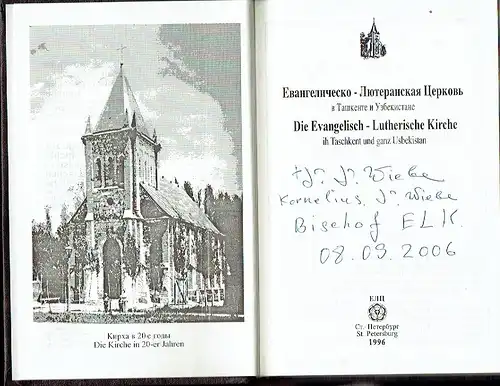 Кирха в 20-е годы
Die Kirche in 20-er Jahren
Евангелическо - Лютеранская Церковь
в Ташкенте и Узбекистане
Die Evangelisch - Lutherische Kirche
ih Taschkent und ganz Usbekistan
Wiebe
Kornelius, Wiebe
Bischof ELK.
08.09.2006
ЕЛЦ
Ст.-Петербург
St. Petersburg
1996